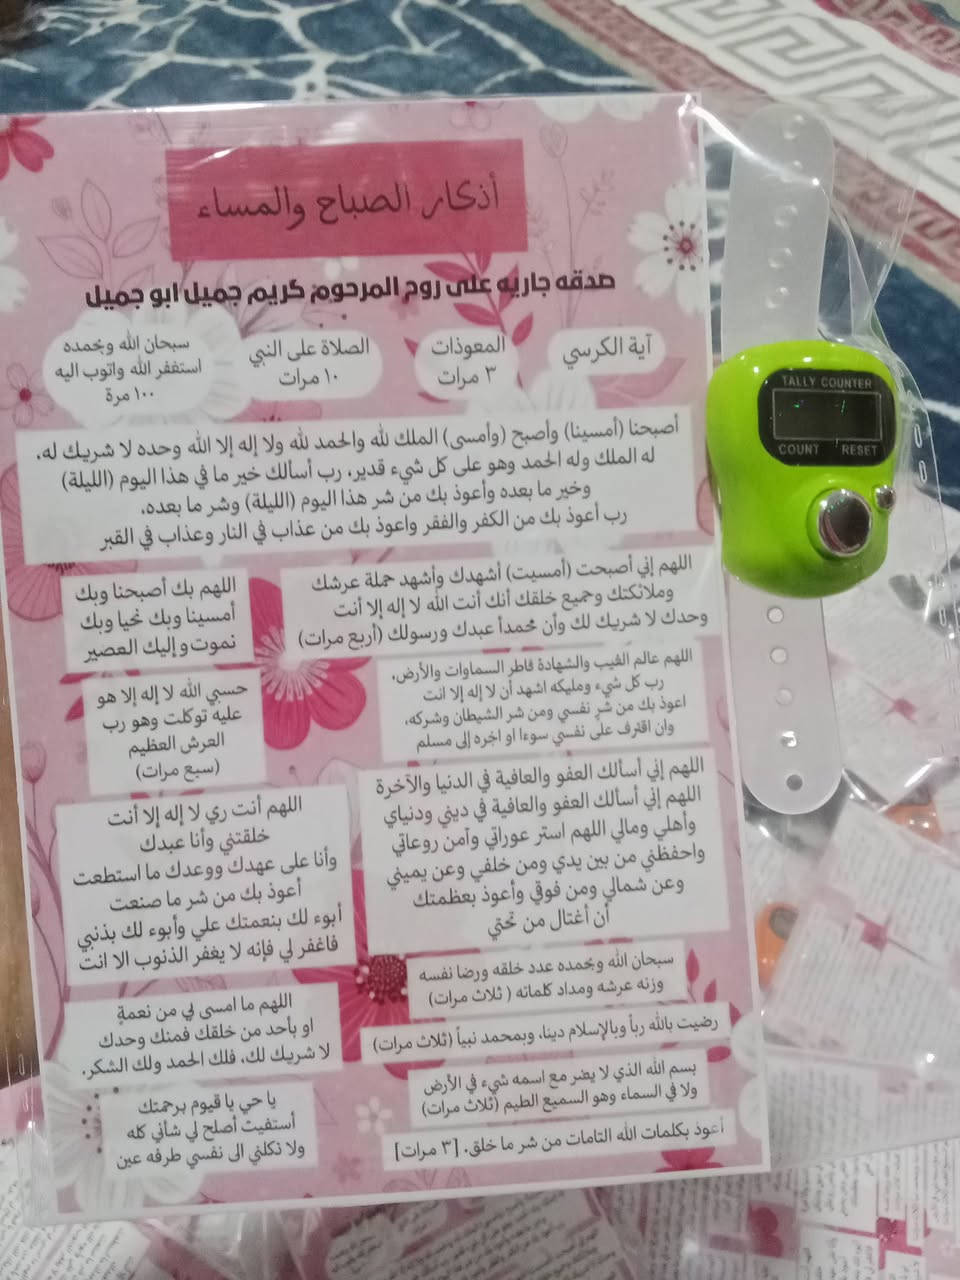 أذكار الصباح والمساء
صدقه جاريه على روح المرحوم كريم جميل ابو جميل
آية الكرسي
المعوذات
٣ مرات
الصلاة على النبي
١٠ مرات
سبحان الله وبحمده
استغفر الله واتوب اليه
١٠٠ مرة
أصبحنا (أمسينا) وأصبح (وأمسى) الملك لله والحمد لله ولا إله إلا الله وحده لا شريك له،
له الملك وله الحمد وهو على كل شيء قدير، رب أسألك خير ما في هذا اليوم (الليلة)
وخير ما بعده وأعوذ بك من شر هذا اليوم (الليلة) وشر ما بعده،
رب أعوذ بك من الكفر والفقر واعوذ بك من عذاب في النار وعذاب في القبر
اللهم إني أصبحت (أمسيت) أشهدك وأشهد حملة عرشك
وملائكتك وجميع خلقك أنك أنت الله لا إله إلا أنت
وحدك لا شريك لك وأن محمدأ عبدك ورسولك (أربع مرات)
اللهم بك أصبحنا وبك
أمسينا وبك نحيا وبك
نموت وإليك العصير
اللهم عالم الغيب والشهادة فاطر السماوات والأرض،
رب كل شيء ومليكه اشهد أن لا إله إلا انت
اعوذ بك من شر نفسي ومن شر الشيطان وشركه،
وان اقترف على نفسي سوءا او اجره إلى مسلم
حسبي الله لا إله إلا هو
عليه توكلت وهو رب
العرش العظيم
(سبع مرات)
اللهم إني أسألك العفو والعافية في الدنيا والآخرة
اللهم إني أسألك العفو والعافية في ديني ودنياي
وأهلي ومالي اللهم استر عوراتي وآمن روعاتي
واحفظني من بين يدي ومن خلفي وعن يميني
وعن شمالي ومن فوقي وأعوذ بعظمتك
أن أغتال من تحتي
اللهم أنت ربي لا إله إلا أنت
خلقتني وأنا عبدك
وأنا على عهدك ووعدك ما استطعت
أعوذ بك من شر ما صنعت
أبوء لك بنعمتك علي وأبوء لك بذنبي
فاغفر لي فإنه لا يغفر الذنوب الا انت
سبحان الله وبحمده عدد خلقه ورضا نفسه
وزنه عرشه ومداد كلماته ( ثلاث مرات)
رضيت بالله رباً وبالإسلام دينا، وبمحمد نبياً (ثلاث مرات)
اللهم ما امسى لي من نعمةٍ
او بأحد من خلقك فمنك وحدك
لا شريك لك، فلك الحمد ولك الشكر.
بسم الله الذي لا يضر مع اسمه شيء في الأرض
ولا في السماء وهو السميع الطيم (ثلاث مرات)
أعوذ بكلمات الله التامات من شر ما خلق. [٣ مرات]
يا حي يا قيوم برحمتك
أستفيت أصلح لي شأني كله
ولا تكلني الى نفسي طرفه عين
TALLY COUNTER
COUNT RESET